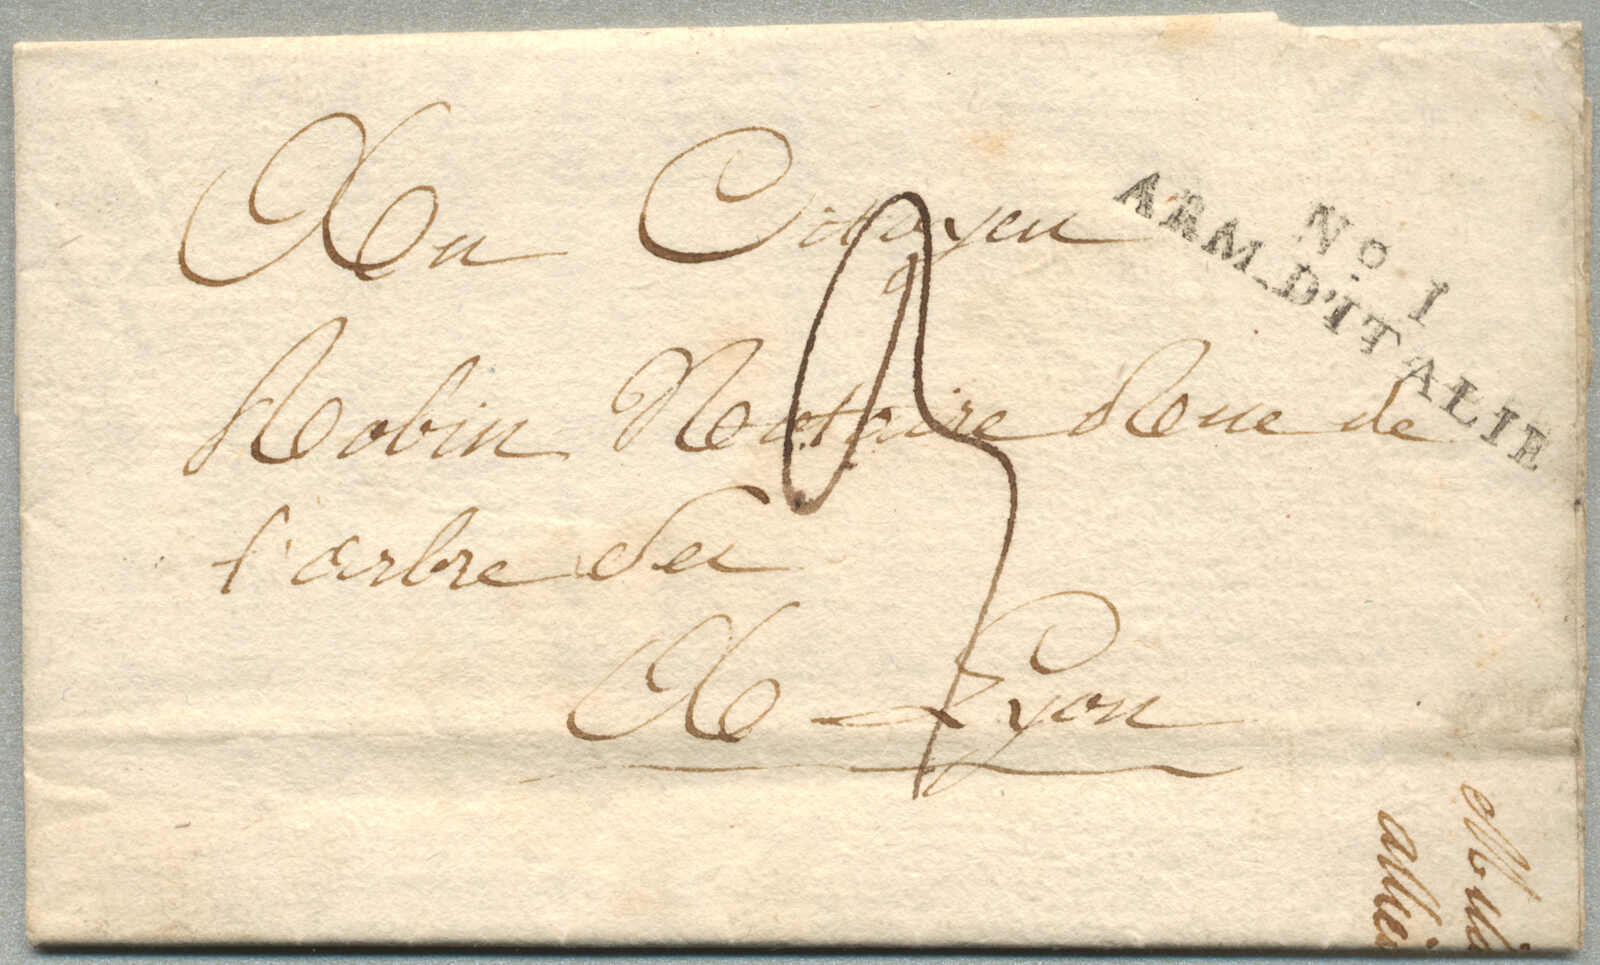 Au Citoyen
No. 1
ARM. D'ITALIE
Robin Notaire Rue de
l'arbre sec
A Lyon